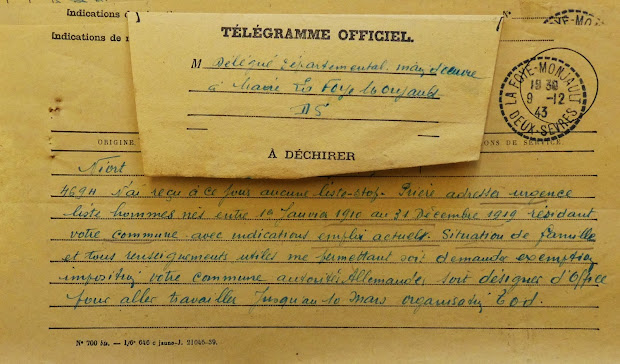 Indications de
Nº
LA FOYE-MONJAUL
Indications de
TÉLÉGRAMME OFFICIEL.
M Délégué Départemental main d'œuvre
à Mairie La Foye Monjault
DS
LA FOYE-MONJAULT
19 30
9 -12
43
DEUX-SÈVRES
ORIGINE.
ONS DE SERVICE.
À DÉCHIRER
Niort
469H N'ai reçu à ce jour aucune liste-stop- Prière adresser urgence
liste hommes nés entre 1er Janvier 1910 au 31 Décembre 1919 résidant
votre commune avec indications emploi actuels. Situation de famille
et tous renseignements utiles me permettant soit demander exemption
imposition votre commune autorités Allemandes soit désigner d'Office
pour aller travailler jusqu'au 10 Mars organisation Tod.
Nº 700 bis. — 1/0° 646 c jaune-J. 21045-39.